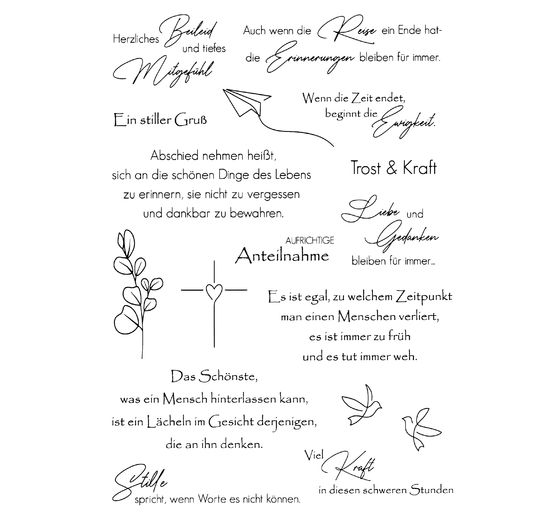 Herzliches Beileid
und tiefes
Mitgefühl
Auch wenn die Reise ein Ende hat-
die Erinnerungen bleiben für immer.
Wenn die Zeit endet,
beginnt die
Ewigkeit.
Ein stiller Gruß
Abschied nehmen heißt,
sich an die schönen Dinge des Lebens
zu erinnern, sie nicht zu vergessen
und dankbar zu bewahren.
Trost & Kraft
Liebe und
Gedanken
bleiben für immer...
AUFRICHTIGE
Anteilnahme
Es ist egal, zu welchem Zeitpunkt
man einen Menschen verliert,
es ist immer zu früh
und es tut immer weh.
Das Schönste,
was ein Mensch hinterlassen kann,
ist ein Lächeln im Gesicht derjenigen,
die an ihn denken.
Viel
Kraft
in diesen schweren Stunden
Stille
spricht, wenn Worte es nicht können.